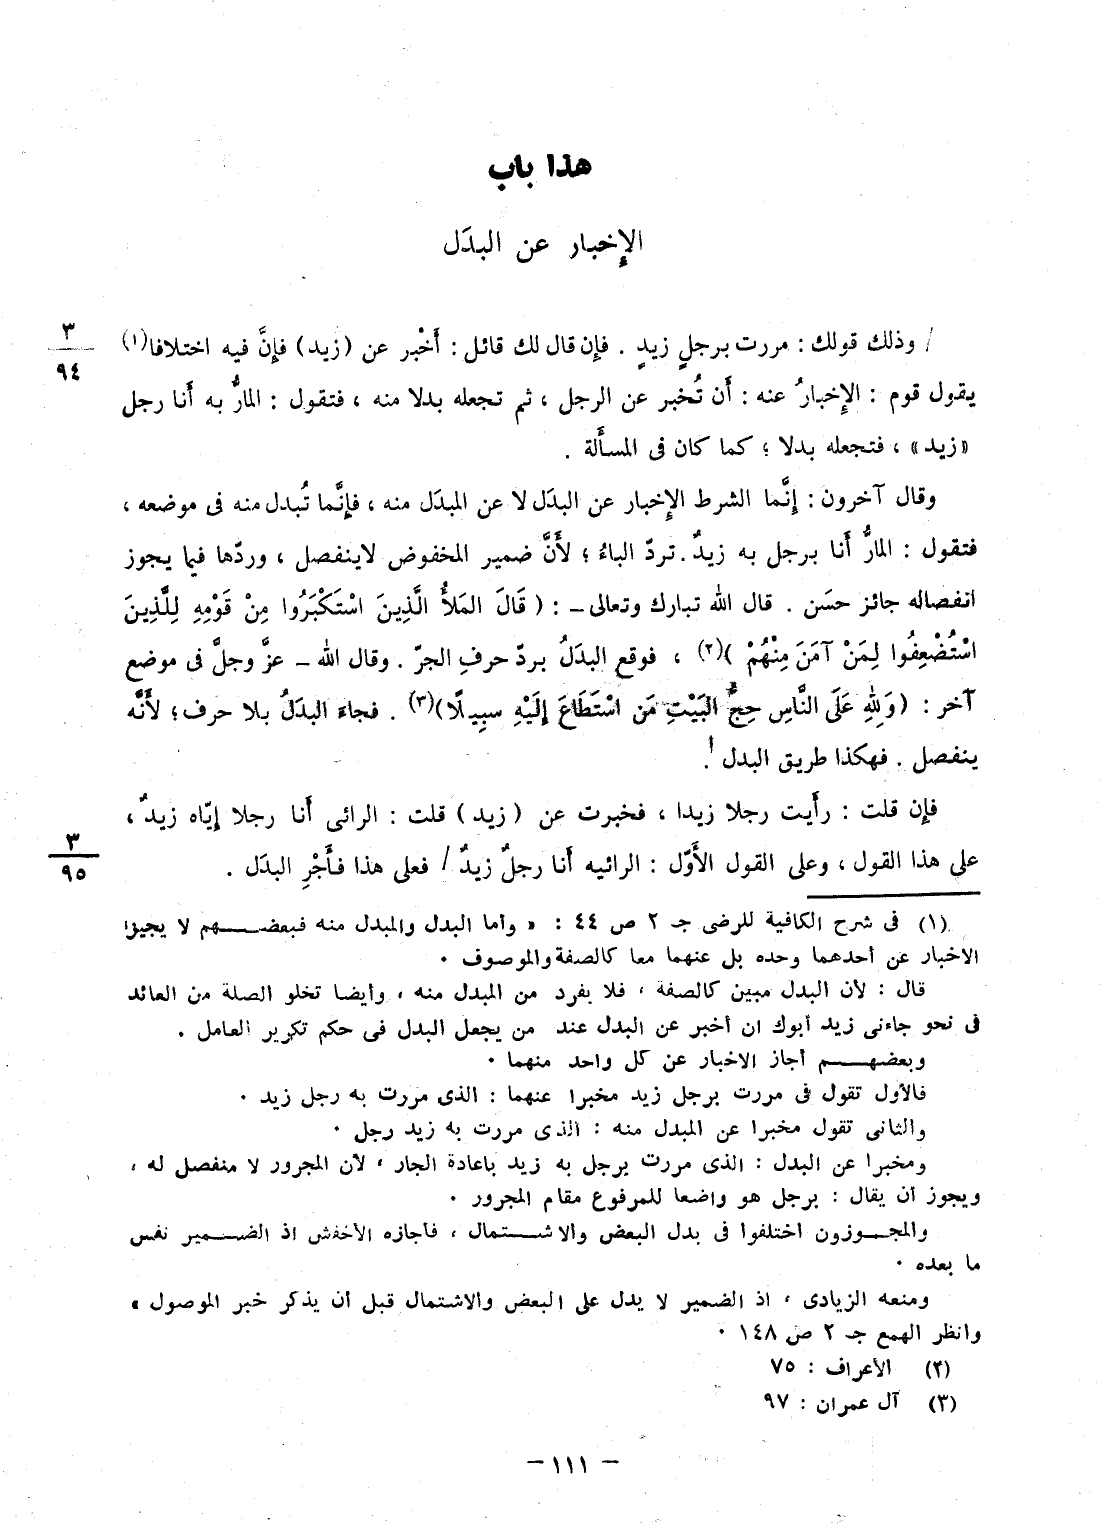 هذا باب
الإخبار عن البدَل
٣
٩٤
/ وذلك قولك : مررت برجلٍ زيدٍ . فإن قال لك قائل : أَخْبر عن (زيد) فإنَّ فيه اختلافا(١)
يقول قوم : الإخبارُ عنه : أَن تُخبر عن الرجل ، ثم تجعله بدلا منه ، فتقول : المارُّ به أنا رجل
«زيد» ، فتجعله بدلا ؛ كما كان فى المسأَلة .
وقال آخرون : إنَّما الشرط الإخبار عن البدَل لا عن المبدَل منه ، فإنَّما تُبدل منه فى موضعه ،
فتقول : المارُّ أَنا برجل به زيدٌ . تردّ الباءُ ؛ لأَنَّ ضمير المخفوض لاينفصل ، وردّها فيما يجوز
انفصاله جائز حسَن . قال الله تبارك وتعالى - : ( قَالَ المَلأُ الَّذِينَ اسْتَكْبَرُوا مِنْ قَوْمِهِ لِلَّذِينَ
اسْتُضْعِفُوا لِمَنْ آمَنَ مِنْهُمْ )(٢) ، فوقع البدَلُ بردّ حرفِ الجرّ . وقال الله - عزَّ وجلَّ فى موضع
آخر : (وَلِلهِ عَلَى النَّاسِ حِجُّ البَيْتِ مَن اسْتَطَاعَ إلَيْهِ سبِيلًا)(٣) . فجاءَ البدَلُ بلا حرف ؛ لأَنَّه
ينفصل . فهكذا طريق البدل .
فإن قلت : رأَيت رجلا زيدا ، فخبرت عن ( زيد ) قلت : الرائى أَنا رجلا إيّاه زيدٌ ،
٣
٩٥
على هذا القول ، وعلى القول الأَوّل : الرائيه أَنا رجلٌ زيدٌ / فعلى هذا فأَجْرِ البدَل .
(١) فى شرح الكافية للرضى جـ ٢ ص ٤٤ : « وأما البدل والمبدل منه فبعضهم لا يجيز
الاخبار عن أحدهما وحده بل عنهما معا كالصفة والموصوف .
قال : لأن البدل مبين كالصفة ، فلا يفرد من المبدل منه ، وأيضا تخلو الصلة من العائد
فى نحو جاءنى زيد أبوك ان أخبر عن البدل عند من يجعل البدل فى حكم تكرير العامل .
وبعضهم أجاز الاخبار عن كل واحد منهما .
فالأول تقول فى مررت برجل زيد مخبرا عنهما : الذى مررت به رجل زيد .
والثانى تقول مخبرا عن المبدل منه : الذى مررت به زيد رجل .
ومخبرا عن البدل : الذى مررت برجل به زيد باعادة الجار ، لأن المجرور لا منفصل له ،
ويجوز أن يقال : برجل هو واضعا للمرفوع مقام المجرور .
والمجوزون اختلفوا فى بدل البعض والاشتمال ، فأجازه الأخفش اذ الضمير نفس
ما بعده .
ومنعه الزيادى ، اذ الضمير لا يدل على البعض والاشتمال قبل أن يذكر خبر الموصول »
وانظر الهمع جـ ٢ ص ١٤٨ .
(٢) الأعراف : ٧٥
(٣) آل عمران : ٩٧
- ١١١ -